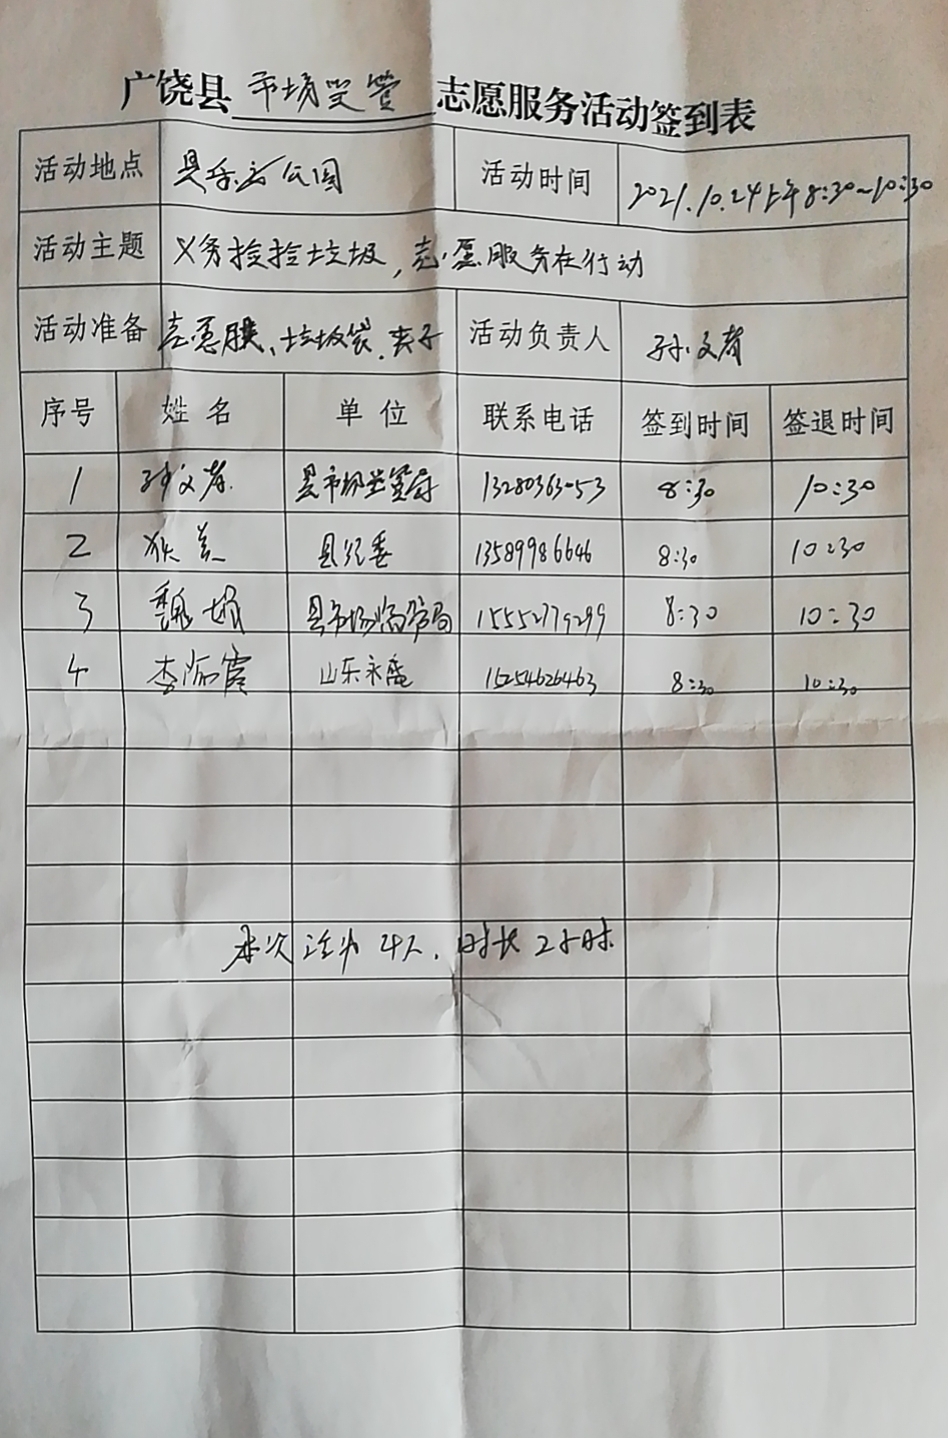 广饶县 市场监管 志愿服务活动签到表
活动地点 县乐安公园 活动时间 2021.10.24上午8:30~10:30
活动主题 义务捡拾垃圾,志愿服务在行动
活动准备 志愿服、垃圾袋、夹子 活动负责人 孙文
序号 姓名 单位 联系电话 签到时间 签退时间
1 孙文 县市场监管局 8:30 10:30
2 美 县 13589986646 8:30 10:30
3 魏 县市场监管局 15552779299 8:30 10:30
4 李丽霞 山东永盛 15254626463 8:30 10:30
本次活动4人,时长2小时